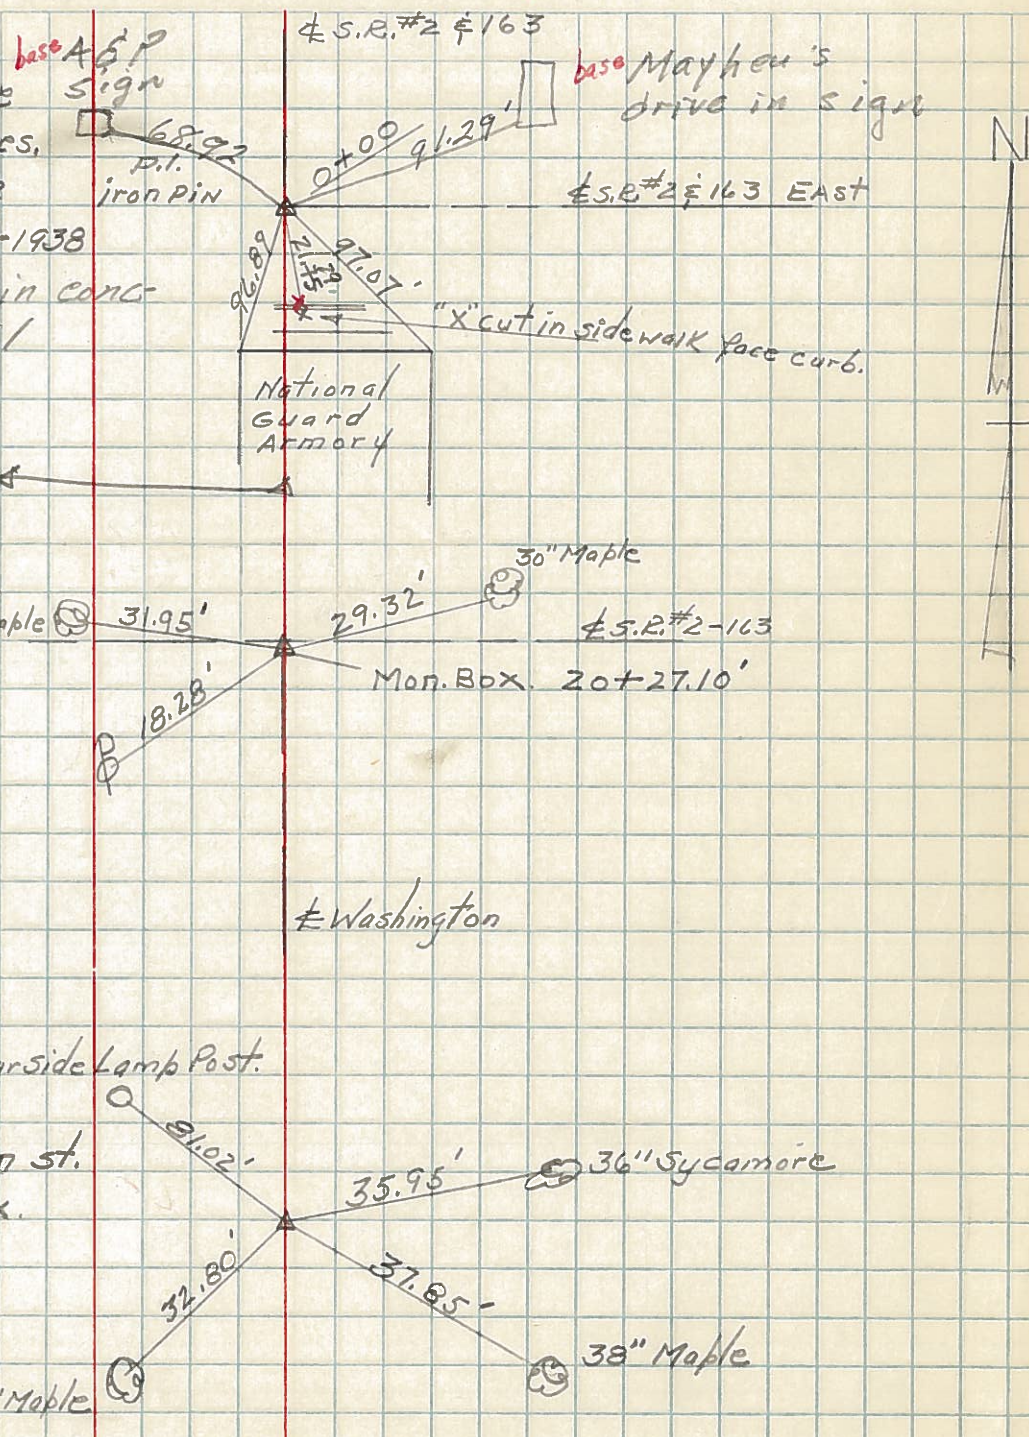 ℄ S.R. #2 & 163
base A & P
sign
base Mayheu's
drive in sign
N
es.
68.92
P.I.
iron PiN
0+00
91.29'
℄ S.R. #2 & 163 EAST
-1938
in conc-
96.89
97.07'
"X" cut in sidewalk face curb.
National
Guard
Armory
30" Maple
aple
31.95'
29.32'
℄ S.R. #2-163
Mon. Box. 20+27.10'
18.28'
℄ Washington
rside Lamp Post.
81.02'
n st.
35.95'
36" Sycamore
x.
32.80'
37.85'
38" Maple
" Maple